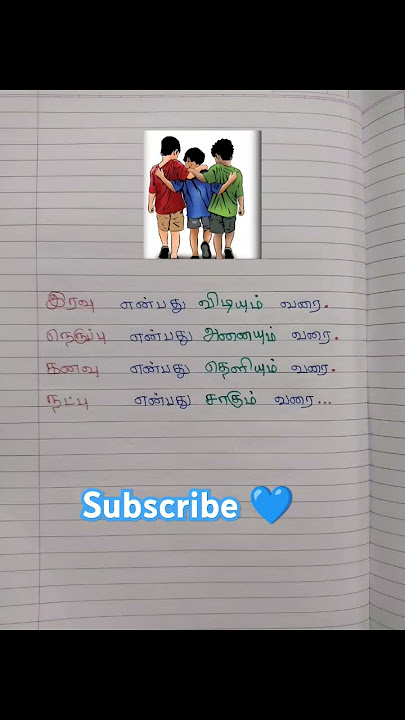 இரவு என்பது விடியும் வரை.
நெருப்பு என்பது அணையும் வரை.
கனவு என்பது தெளியும் வரை.
நட்பு என்பது சாகும் வரை...
Subscribe 💙